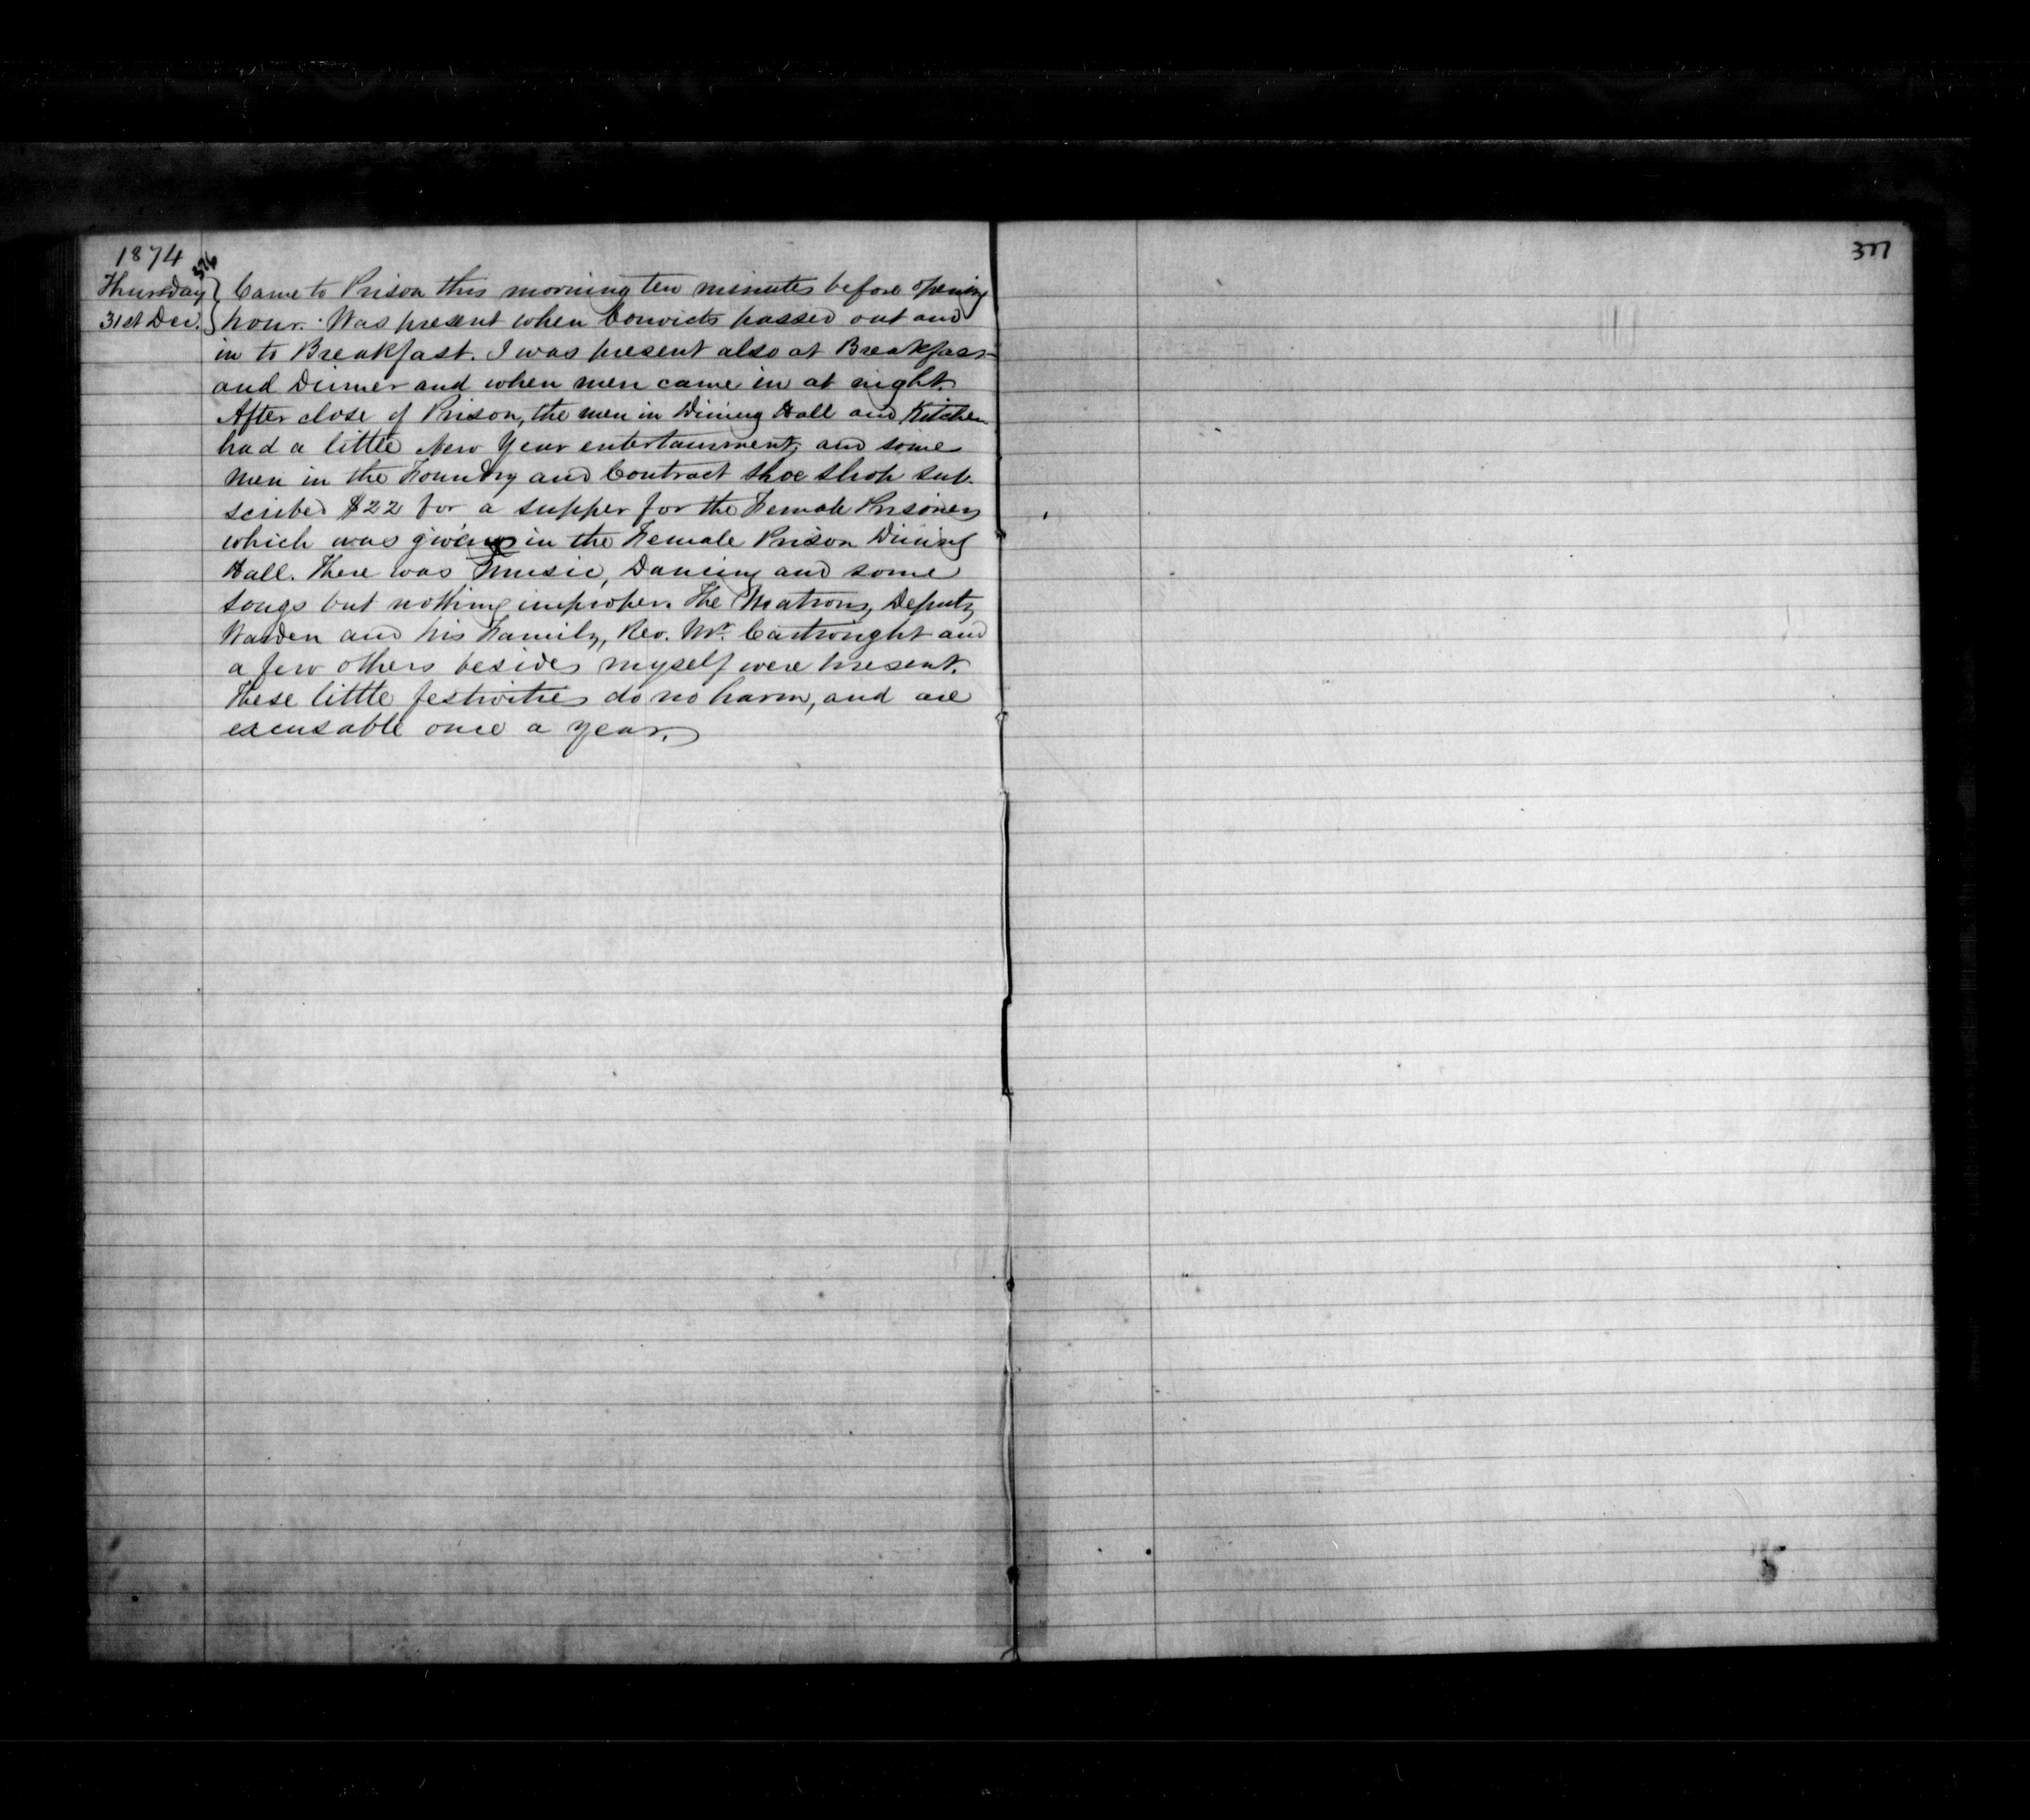 1874
376
Thursday } Came to Prison this morning ten minutes before opening
31st Dec. } hour. Was present when Convicts passed out and
in to Breakfast. I was present also at Breakfast
and Dinner and when men came in at night.
After close of Prison, the men in Dining Hall and Kitchen
had a little New Year entertainment, and some
men in the Foundry and Contract Shoe Shop sub-
scribed $22 for a supper for the Female Prisoners
which was given in the Female Prison Dining
Hall. There was music, Dancing and some
songs but nothing improper. The Matrons, Deputy
Warden and his Family, Rev. Mr. Cartwright and
a few others besides myself were present.
These little festivities do no harm, and are
excusable once a year.
377